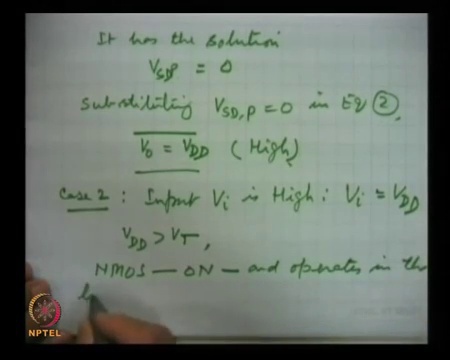 It has the solution
V_SDP = 0
Substituting V_SD,P = 0 in Eq ②,
V_0 = V_DD (High)
Case 2 : Input V_i is High : V_i = V_DD
V_DD > V_T,
NMOS — ON — and operates in the
NPTEL